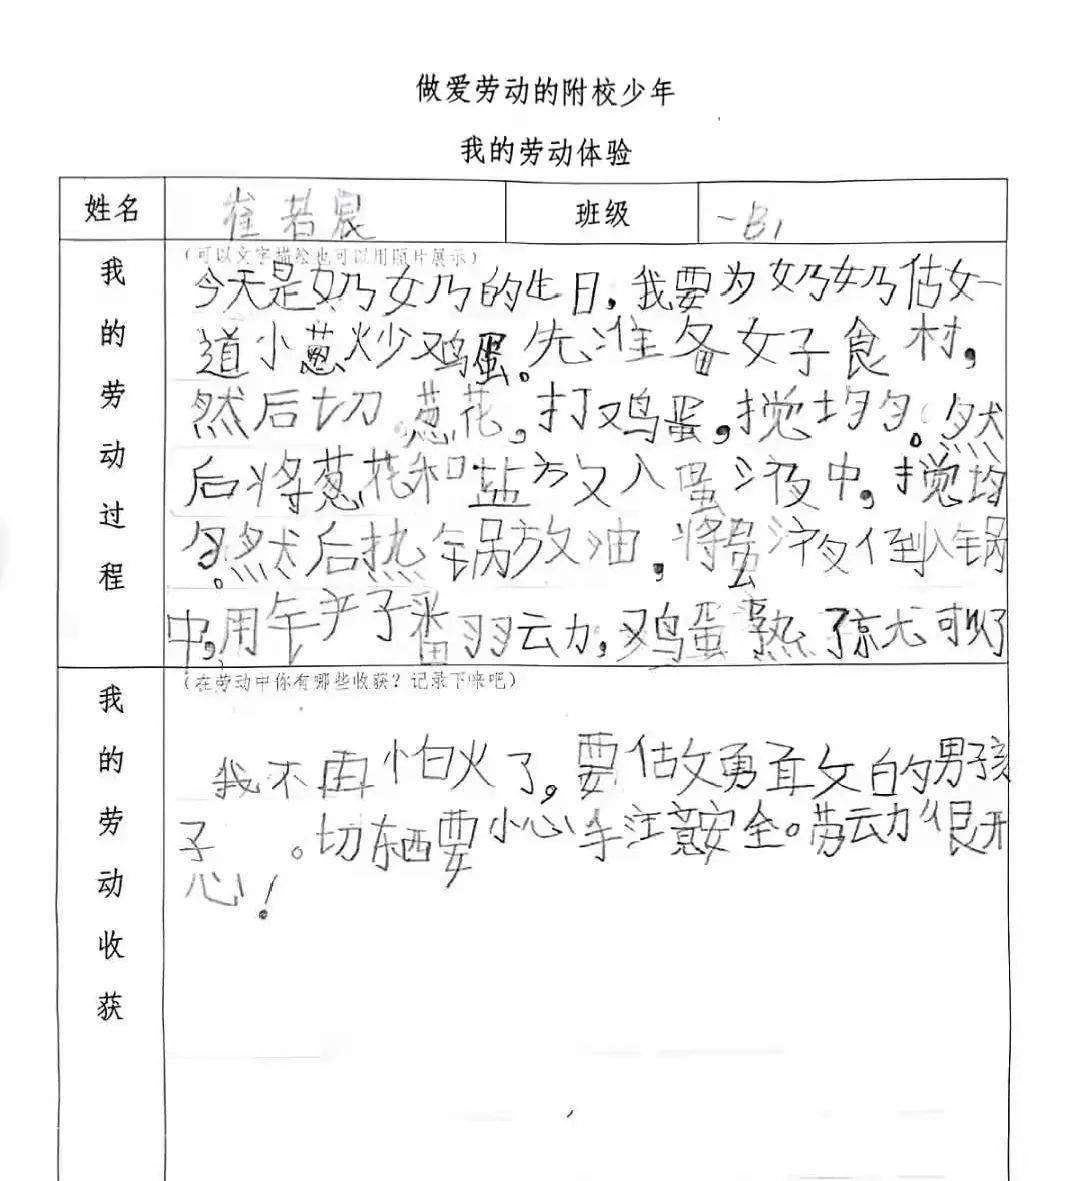 做爱劳动的附校少年
我的劳动体验
姓名 崔若宸 班级 一B1
我的劳动过程
(可以文字描绘也可以用照片展示)
今天是奶奶的生日，我要为奶奶做一
道小葱炒鸡蛋。先准备好食材，
然后切葱花，打鸡蛋，搅均匀。然
后将葱花和盐放入蛋液中，搅均
匀。然后热锅放油，将蛋液倒入锅
中，用铲子翻动，鸡蛋熟了就可以了
我的劳动收获
(在劳动中你有哪些收获？记录下来吧)
我不再怕火了，要做勇敢的男孩
子。切东西要小心手注意安全。劳动很开
心！